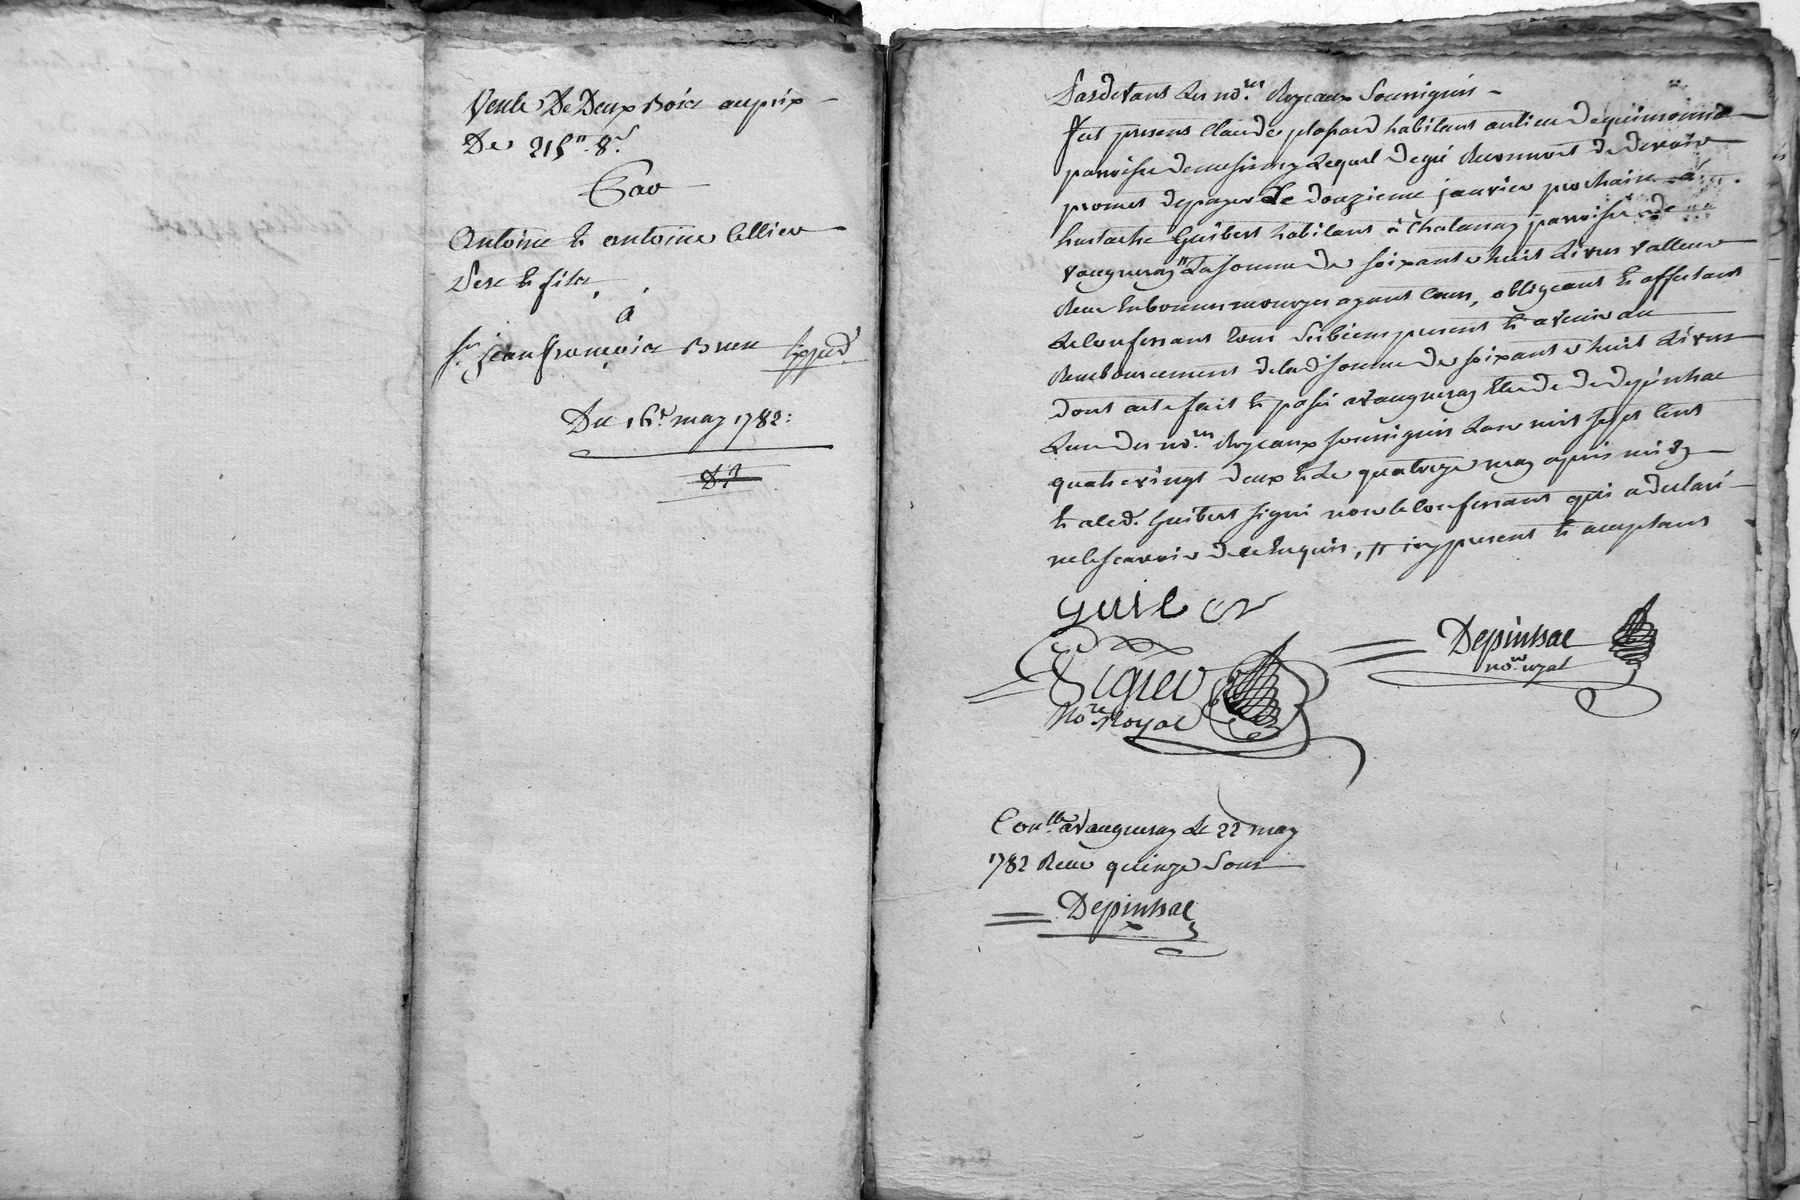 Vente De Deux Bois au prix
De 215ᵗᵗ 8ˢ
Par
Antoine et antoine Cellier
Pere et fils
à
Sʳ jean françois Brun Exped
Du 16ᵉ may 1782:
Pardevant Les noʳᵉˢ Royeaux Soussignés
fut present Claude plapard habitant au lieu de
paroisse de messimy Lequel de gré Reconnoit de devoir
promet de payer Le douzieme janvier prochain à
Eustache Guibert habitant à Chatanay paroisse de
vaugneray La somme de soixante huit Livres valleur
Reue En bonnes monoyes ayant Cours, obligeant et affectant
Le Confessant Tous Ses biens present et avenir au
Remboursement de lad somme de soixante huit Livres
dont acte fait et passé a vaugneray Etude de depinhac
L'un des noʳᵉˢ Royeaux soussignés L'an mil sept Cent
quatrevingt deux et Le quatorze may après midy
et a led. Guibert signé non le Confessant qui a declaré
ne le scavoir de ce Enquis, // icy present et acceptant
guibert
Noʳᵉ Royal
Depinhac
noʳᵉ royal
Conˡˡᵉ a vaugneray Le 22 may
1782 Reue quinze Sous
Depinhac